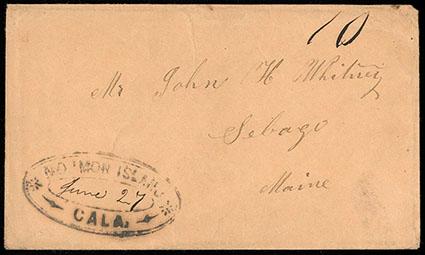 10
Mr John H Whitney
Sebago
Maine
MORMON ISLAND
June 27
CALA.